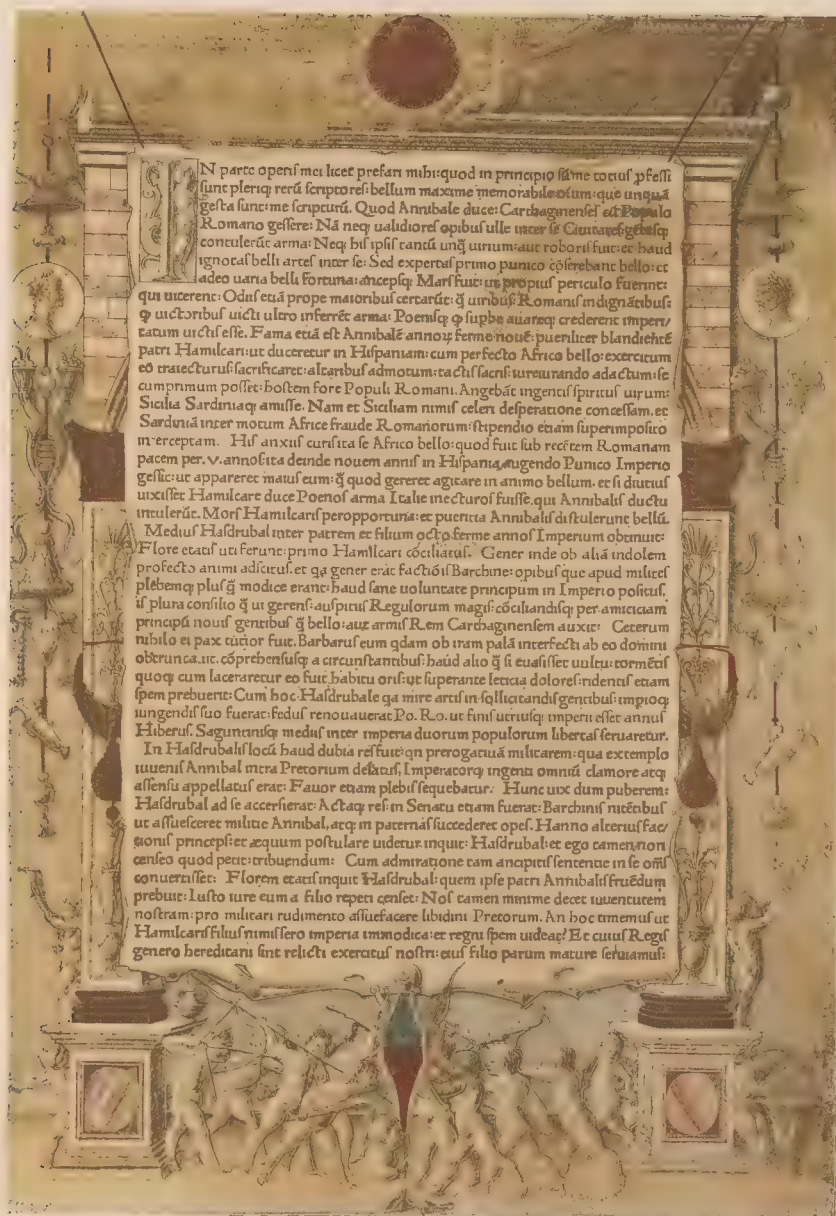 IN parte operiſ mei licet prefari mihi: quod in principio ſūme totiuſ ꝓfeſſi
ſunt pleriqꝫ rerū ſcriptoreſ: bellum maxime memorabile oīum: que unquā
geſta ſunt: me ſcripturū. Quod Annibale duce: Carthaginenſeſ cū Populo
Romano geſſere: Nā neqꝫ ualidioreſ opibuſ ulle inter ſe Ciuitateſ: genteſqꝫ
contulerūt arma: Neqꝫ hiſ ipſiſ tantū unq̄ uirium: aut roboriſ fuit: et haud
ignotaſ belli arteſ inter ſe: Sed expertaſ primo punico cōſerebant bello: et
adeo uaria belli fortuna: ancepſqꝫ Marſ fuit: ut propiuſ periculo fuerint:
qui uicerent: Odiiſ etiā prope maioribuſ certarūt: q̄ uiribuſ: Romaniſ indignātibuſ:
ꝙ uictoribuſ uicti ultro inferrēt arma: Poeniſqꝫ ꝙ ſupbe auareqꝫ crederent imperi/
tatum uictiſ eſſe. Fama etiā eſt Annibalē annoꝝ ferme nouē: pueriliter blandiētē
patri Hamilcari: ut duceretur in Hiſpaniam: cum perfecto Africo bello: exercitum
eō traiecturuſ: ſacrificaret: altaribuſ admotum: tactiſ ſacriſ: iureiurando adactum: ſe
cumprimum poſſet: hoſtem fore Populi Romani. Angebāt ingentiſ ſpirituſ uirum:
Sicilia Sardiniaqꝫ amiſſe. Nam et Siciliam nimiſ celeri deſperatione conceſſam. et
Sardiniā inter motum Africe fraude Romanorum: ſtipendio etiam ſuperimpoſito
interceptam. Hiſ anxiuſ curiſ ita ſe Africo bello: quod fuit ſub recētem Romanam
pacem per. v. annoſ: ita deinde nouem anniſ in Hiſpania, augendo Punico Imperio
geſſit: ut appareret maiuſ eum: q̄ quod gereret agitare in animo bellum. et ſi diutiuſ
uixiſſet Hamilcare duce Poenoſ arma Italie inlecturoſ fuiſſe. qui Annibaliſ ductu
intulerūt. Morſ Hamilcariſ peropportuna: et pueritia Annibaliſ diſtulerunt bellū.
Mediuſ Haſdrubal inter patrem et filium octo ferme annoſ Imperium obtinuit:
Flore etatiſ uti ferunt: primo Hamilcari cōciliatuſ. Gener inde ob aliā indolem
profecto animi adſcituſ. et qa gener erāt factiōiſ Barchine: opibuſ que apud militeſ
plebemqꝫ pluſ q̄ modice erant: haud ſane uoluntate principum in Imperio poſituſ.
iſ plura conſilio q̄ ui gerenſ: auſpitiiſ Regulorum magiſ: cōciliandiſqꝫ per amiciciam
principū nouiſ gentibuſ q̄ bello: aut armiſ Rem Carthaginenſem auxit: Ceterum
nihilo ei pax tutior fuit. Barbaruſ eum qdam ob iram palā interfecti ab eo domini
obtruncauit. cōprehenſuſqꝫ a circunſtantibuſ: haud alio q̄ ſi euaſiſſet uultu: tormētiſ
quoqꝫ cum laceraretur eo fuit habitu oriſ: ut ſuperante leticia doloreſ: ridentiſ etiam
ſpem prebuerit: Cum hoc Haſdrubale qa mire artiſ in ſollicitandiſ gentibuſ: imꝑioqꝫ
iungendiſ ſuo fuerat: feduſ renouauerat Po. Ro. ut finiſ utriuſqꝫ imperii eſſet amniſ
Hiberuſ. Saguntiniſqꝫ mediiſ inter imperia duorum populorum libertaſ ſeruaretur.
In Haſdrubaliſ locū haud dubia reſ fuit: qn prerogatiuā militarem: qua extemplo
iuueniſ Annibal intra Pretorium delatuſ, Imperatorqꝫ ingenti omniū clamore atqꝫ
aſſenſu appellatuſ erat: Fauor etiam plebiſ ſequebatur: Hunc uix dum puberem:
Haſdrubal ad ſe accerſierat: Actaqꝫ reſ in Senatu etiam fuerat: Barchiniſ nitētibuſ
ut aſſueſceret militie Annibal, atqꝫ in paternaſ ſuccederet opeſ. Hanno alteriuſ fac/
tioniſ princepſ: et æquum poſtulare uidetur inquit: Haſdrubal: et ego tamen non
cenſeo quod petit: tribuendum: Cum admiratione tam ancipitiſ ſententie in ſe omīſ
conuertiſſet: Florem etatiſ inquit Haſdrubal: quem ipſe patri Annibaliſ fruēdum
prebuit: Iuſto iure eum a filio repeti cenſet: Noſ tamen minime decet iuuentutem
noſtram: pro militari rudimento aſſuefacere libidini Pretorum. An hoc timemuſ ut
Hamilcariſ filiuſ nimiſ ſero imperia immodica: et regni ſpem uideat? Et cuiuſ Regiſ
genero hereditarii ſint relicti exercituſ noſtri: eiuſ filio parum mature ſeruiamuſ: